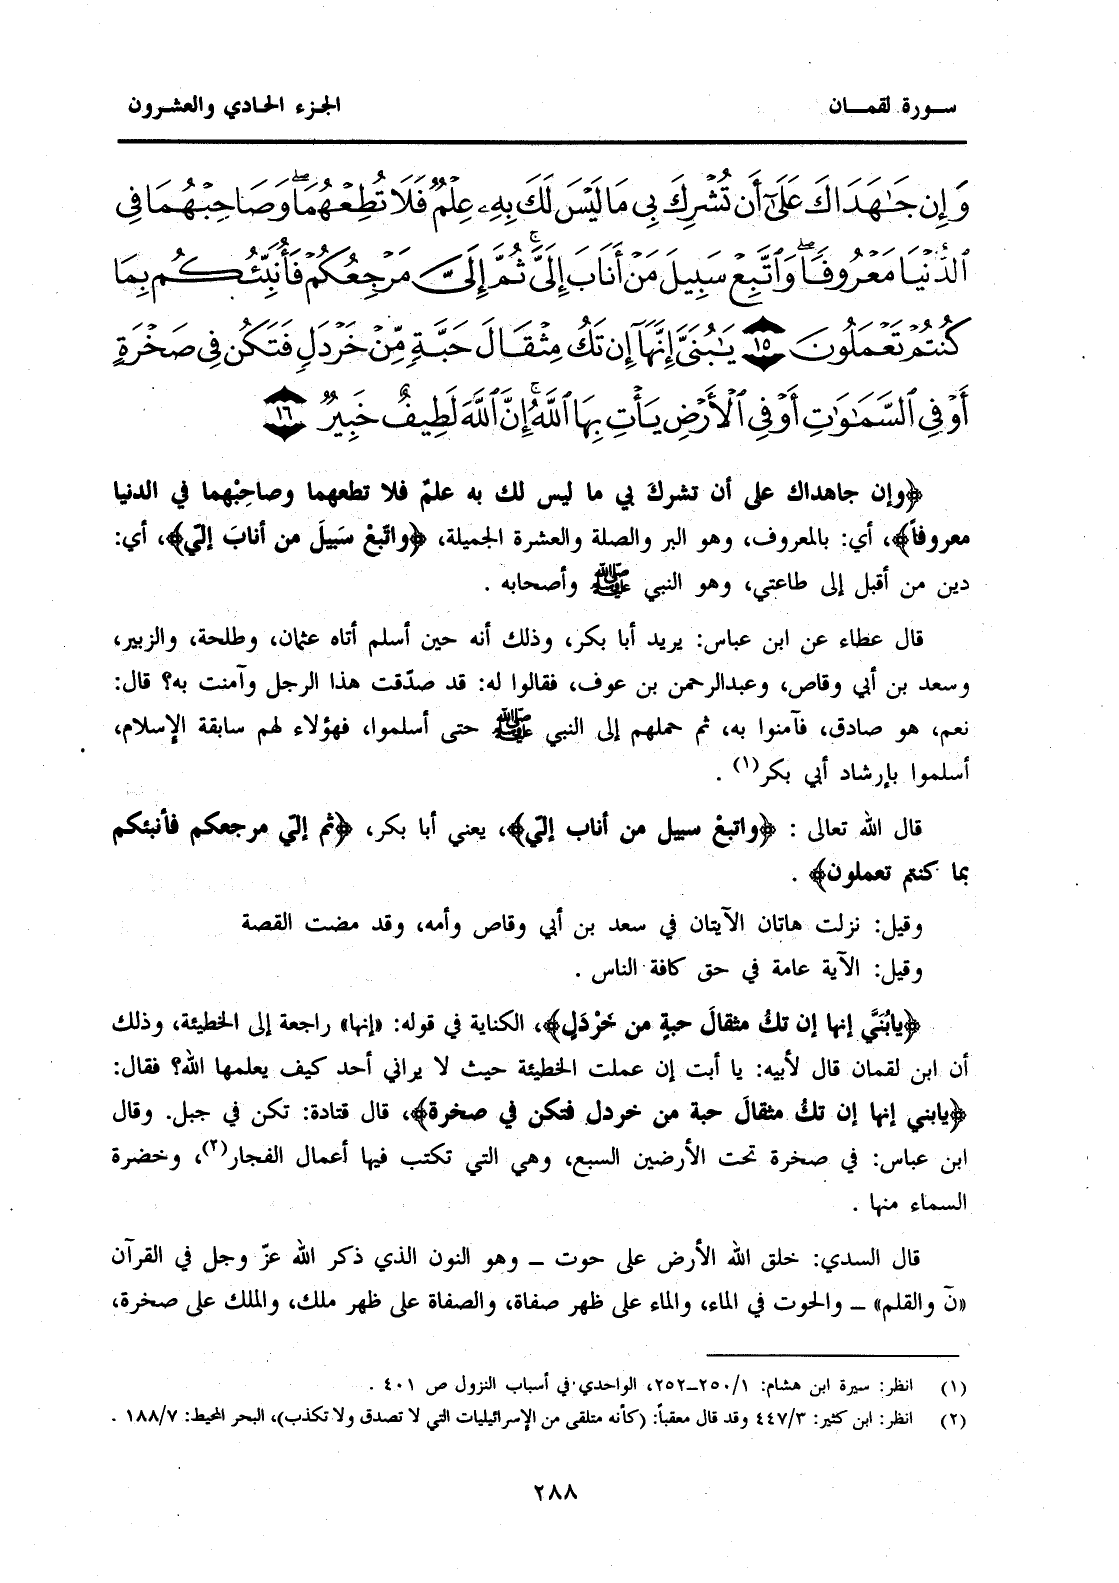 سـورة لقمـــان
الجزء الحادي والعشرون
وَإِن جَٰهَدَاكَ عَلَىٰٓ أَن تُشْرِكَ بِى مَا لَيْسَ لَكَ بِهِۦ عِلْمٌ فَلَا تُطِعْهُمَا ۖ وَصَاحِبْهُمَا فِى
ٱلدُّنْيَا مَعْرُوفًا ۖ وَٱتَّبِعْ سَبِيلَ مَنْ أَنَابَ إِلَىَّ ۚ ثُمَّ إِلَىَّ مَرْجِعُكُمْ فَأُنَبِّئُكُم بِمَا
كُنتُمْ تَعْمَلُونَ ١٥ يَٰبُنَىَّ إِنَّهَآ إِن تَكُ مِثْقَالَ حَبَّةٍ مِّنْ خَرْدَلٍ فَتَكُن فِى صَخْرَةٍ
أَوْ فِى ٱلسَّمَٰوَٰتِ أَوْ فِى ٱلْأَرْضِ يَأْتِ بِهَا ٱللَّهُ ۚ إِنَّ ٱللَّهَ لَطِيفٌ خَبِيرٌ ١٦
﴿وإن جاهداك على أن تشركَ بي ما ليس لك به علمٌ فلا تطعهما وصاحِبْهما في الدنيا
معروفاً﴾، أي: بالمعروف، وهو البر والصلة والعشرة الجميلة، ﴿واتّبعْ سَبيلَ من أنابَ إليّ﴾، أي:
دين من أقبل إلى طاعتي، وهو النبي ﷺ وأصحابه .
قال عطاء عن ابن عباس: يريد أبا بكر، وذلك أنه حين أسلم أتاه عثمان، وطلحة، والزبير،
وسعد بن أبي وقاص، وعبدالرحمن بن عوف، فقالوا له: قد صدّقت هذا الرجل وآمنت به؟ قال:
نعم، هو صادق، فآمنوا به، ثم حملهم إلى النبي ﷺ حتى أسلموا، فهؤلاء لهم سابقة الإسلام،
أسلموا بإرشاد أبي بكر(١) .
قال الله تعالى : ﴿واتبعْ سبيل من أناب إليّ﴾، يعني أبا بكر، ﴿ثم إليّ مرجعكم فأنبئكم
بما كنتم تعملون﴾ .
وقيل: نزلت هاتان الآيتان في سعد بن أبي وقاص وأمه، وقد مضت القصة
وقيل: الآية عامة في حق كافة الناس .
﴿يابُنَيَّ إنها إن تكُ مثقالَ حبةٍ من خَرْدَلٍ﴾، الكناية في قوله: «إنها» راجعة إلى الخطيئة، وذلك
أن ابن لقمان قال لأبيه: يا أبت إن عملت الخطيئة حيث لا يراني أحد كيف يعلمها الله؟ فقال:
﴿يابني إنها إن تكُ مثقالَ حبة من خردل فتكن في صخرة﴾، قال قتادة: تكن في جبل. وقال
ابن عباس: في صخرة تحت الأرضين السبع، وهي التي تكتب فيها أعمال الفجار(٢)، وخضرة
السماء منها .
قال السدي: خلق الله الأرض على حوت ــ وهو النون الذي ذكر الله عزّ وجل في القرآن
«نٓ والقلم» ــ والحوت في الماء، والماء على ظهر صفاة، والصفاة على ظهر ملك، والملك على صخرة،
(١) انظر: سيرة ابن هشام: ١/٢٥٠ــ٢٥٢، الواحدي في أسباب النزول ص ٤٠١ .
(٢) انظر: ابن كثير: ٤٤٧/٣ وقد قال معقباً: (كأنه متلقى من الإسرائيليات التي لا تصدق ولا تكذب)، البحر المحيط: ١٨٨/٧ .
٢٨٨